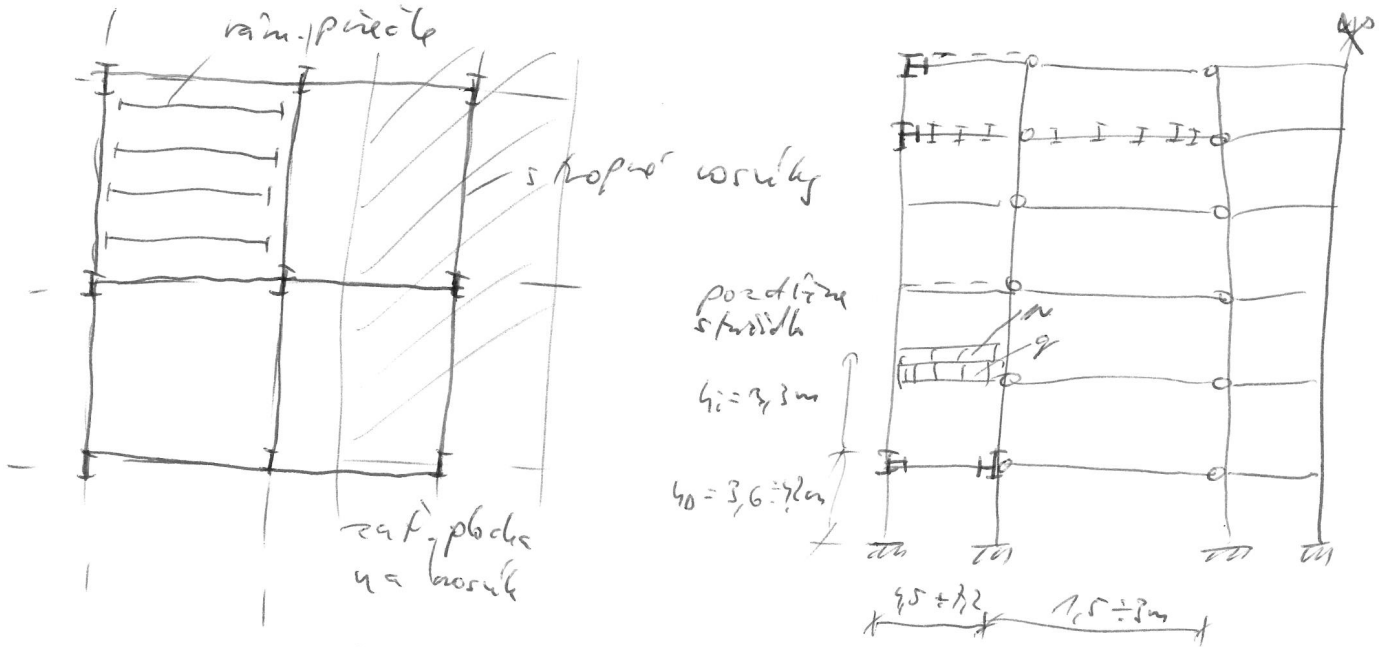 rám. příčle
stropné nosníky
zať. plocha
na nosník
pozdĺžne
stužidlo
n
q
hi = 3,3m
h0 = 3,6 ÷ 4,2m
4,5 ÷ 7,2
1,5 ÷ 3m